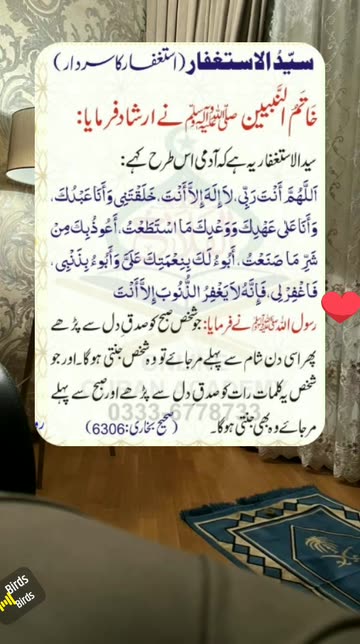 سیّدُ الاستغفار (استغفار کا سردار)
خاتَمُ النَّبیین ﷺ نے ارشاد فرمایا:
سید الاستغفار یہ ہے کہ آدمی اس طرح کہے:
اَللّٰهُمَّ اَنْتَ رَبِّیْ، لَا اِلٰهَ اِلَّا اَنْتَ، خَلَقْتَنِیْ وَاَنَا عَبْدُكَ،
وَاَنَا عَلٰی عَهْدِكَ وَوَعْدِكَ مَا اسْتَطَعْتُ، اَعُوْذُ بِكَ مِنْ
شَرِّ مَا صَنَعْتُ، اَبُوْءُ لَكَ بِنِعْمَتِكَ عَلَیَّ وَاَبُوْءُ بِذَنْۢبِیْ،
فَاغْفِرْ لِیْ، فَاِنَّهٗ لَا یَغْفِرُ الذُّنُوْبَ اِلَّا اَنْتَ
رسول اللہ ﷺ نے فرمایا: جو شخص صبح کو صدقِ دل سے پڑھے
پھر اسی دن شام سے پہلے مر جائے تو وہ شخص جنتی ہوگا۔ اور جو
شخص یہ کلمات رات کو صدق دل سے پڑھے اور صبح سے پہلے
مر جائے وہ بھی جنتی ہوگا۔ (صحیح بخاری: 6306)
0333-6778733
Birds
Birds